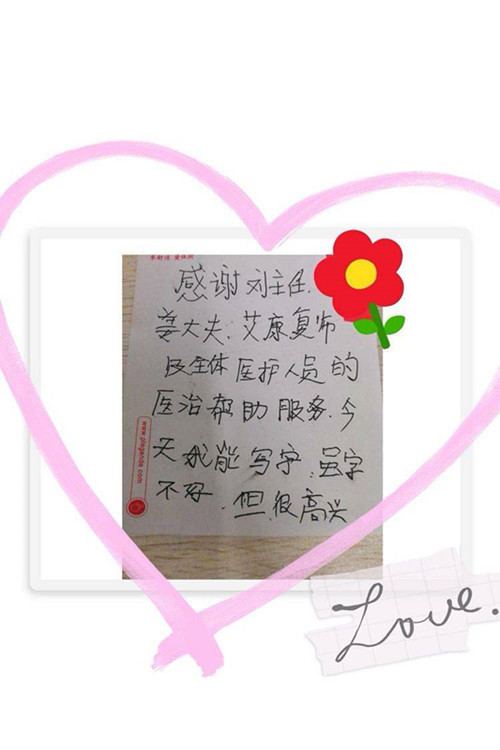 感谢刘主任.
姜大夫.艾康复师
及全体医护人员的
医治帮助服务.今
天我能写字.虽字
不好.但很高兴
www.plegande.com
Love.